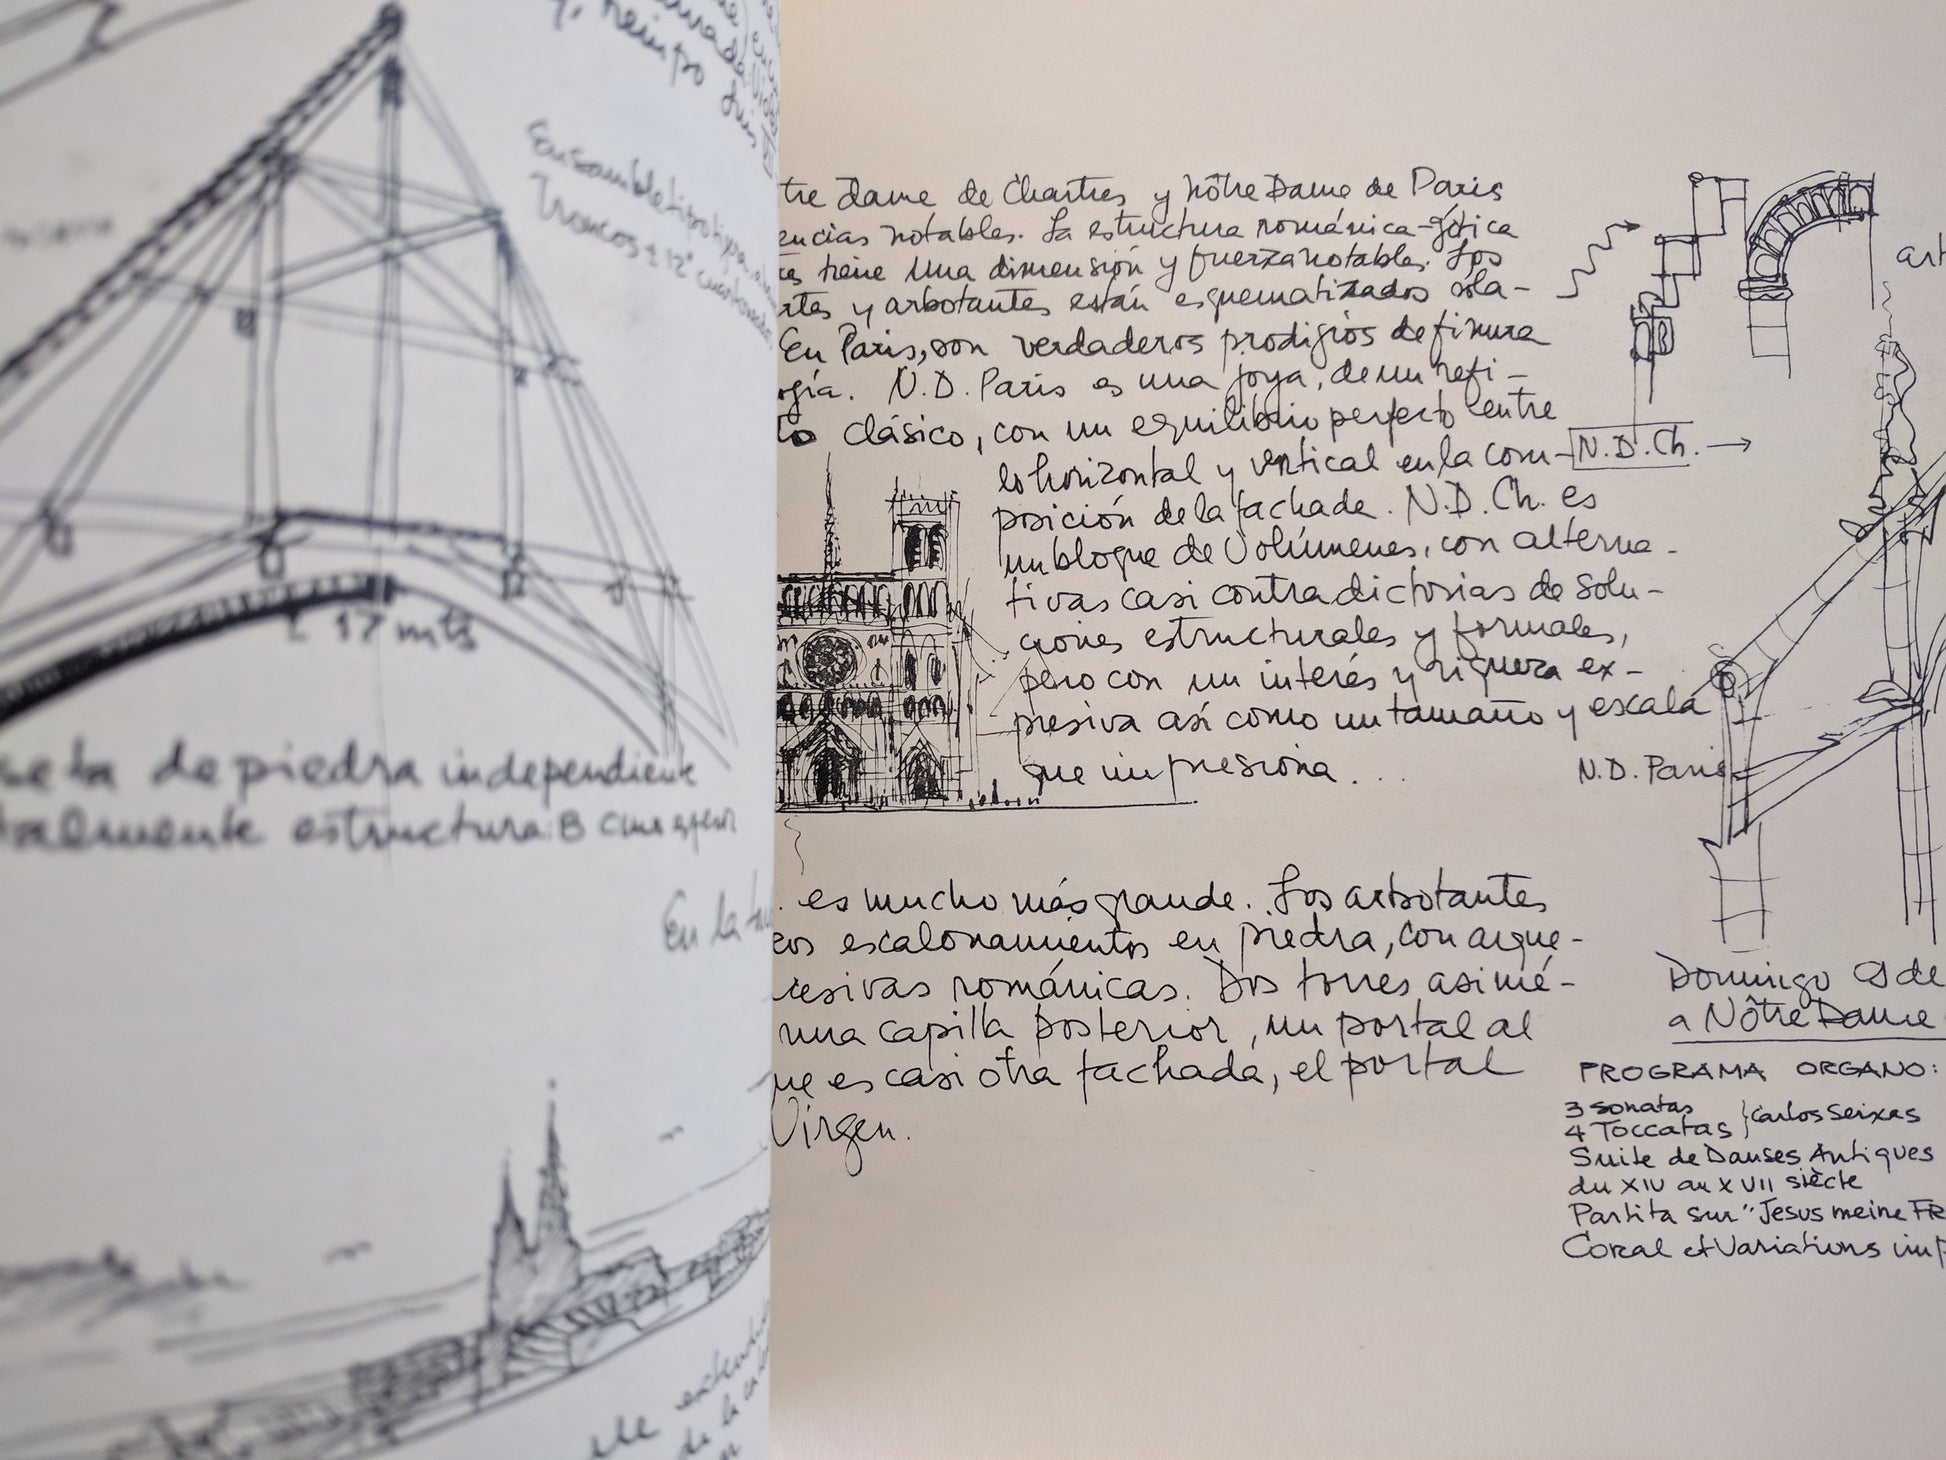 Ensamble tipo
Troncos ± 12"
± 17 mts
de piedra independiente
estructura: 8 cms
En la
tre Dame de Chartres y Nôtre Dame de Paris
encias notables. La estructura románica-gótica
tiene una dimensión y fuerza notables. Los
y arbotantes están esquematizados sola-
En Paris, son verdaderos prodigios de finura
gía. N.D. Paris es una joya, de un refi-
to clásico, con un equilibrio perfecto entre
lo horizontal y vertical en la com-
posición de la fachada. N.D.Ch. es
un bloque de volúmenes, con alterna-
tivas casi contradictorias de solu-
ciones estructurales y formales,
pero con un interés y riqueza ex-
presiva así como un tamaño y escala
que impresiona...
es mucho más grande. Los arbotantes
escalonamientos en piedra, con arque-
cesivas románicas. Dos torres asimé-
una capilla posterior, un portal al
ue es casi otra fachada, el portal
Virgen.
art
N.D.Ch. →
N.D. Paris
Domingo 9 de
a Nôtre Dame
PROGRAMA ORGANO:
3 sonatas
4 Toccatas } Carlos Seixas
Suite de Danses Antiques
du XIV au XVII siècle
Partita sur "Jesus meine FR
Coral et Variations imp